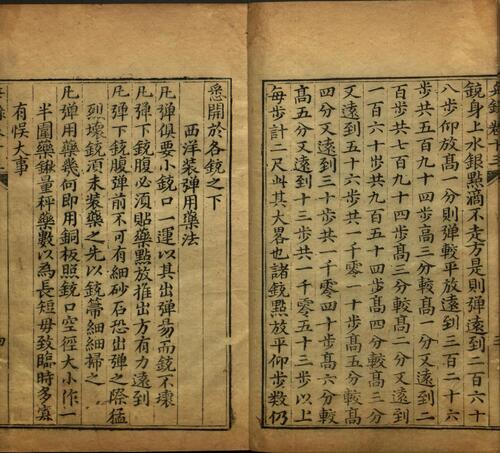 銃身上水銀點滴不走方是則彈遠到二百六十
八步仰放高一分則彈較平放遠到三百二十六
步共五百九十四步高二分較高一分又遠到二
百步共七百九十四步高三分較高二分又遠到
一百六十步共九百五十四步高四分較高三分
又遠到五十六步共一千零一十步高五分較高
四分又遠到三十步共一千零四十步高六分較
高五分又遠到十三步共一千零五十三步以上
每步計二尺此其大畧也諸銃點放平仰步數仍
悉開於各銃之下
西洋裝彈用藥法
凡彈俱要小銃口一運以其出彈易而銃不壞
凡彈下銃腹必須貼藥點放推出方有力遠到
凡彈下銃腹彈前不可有細砂石恐出彈之際猛
烈壞銃須未裝藥之先以銃箒細細掃之
凡彈用藥幾何即用銅板照銃口空徑大小作一
半圍藥鍬量秤藥數以為長短毋致臨時多寡
有悞大事
四